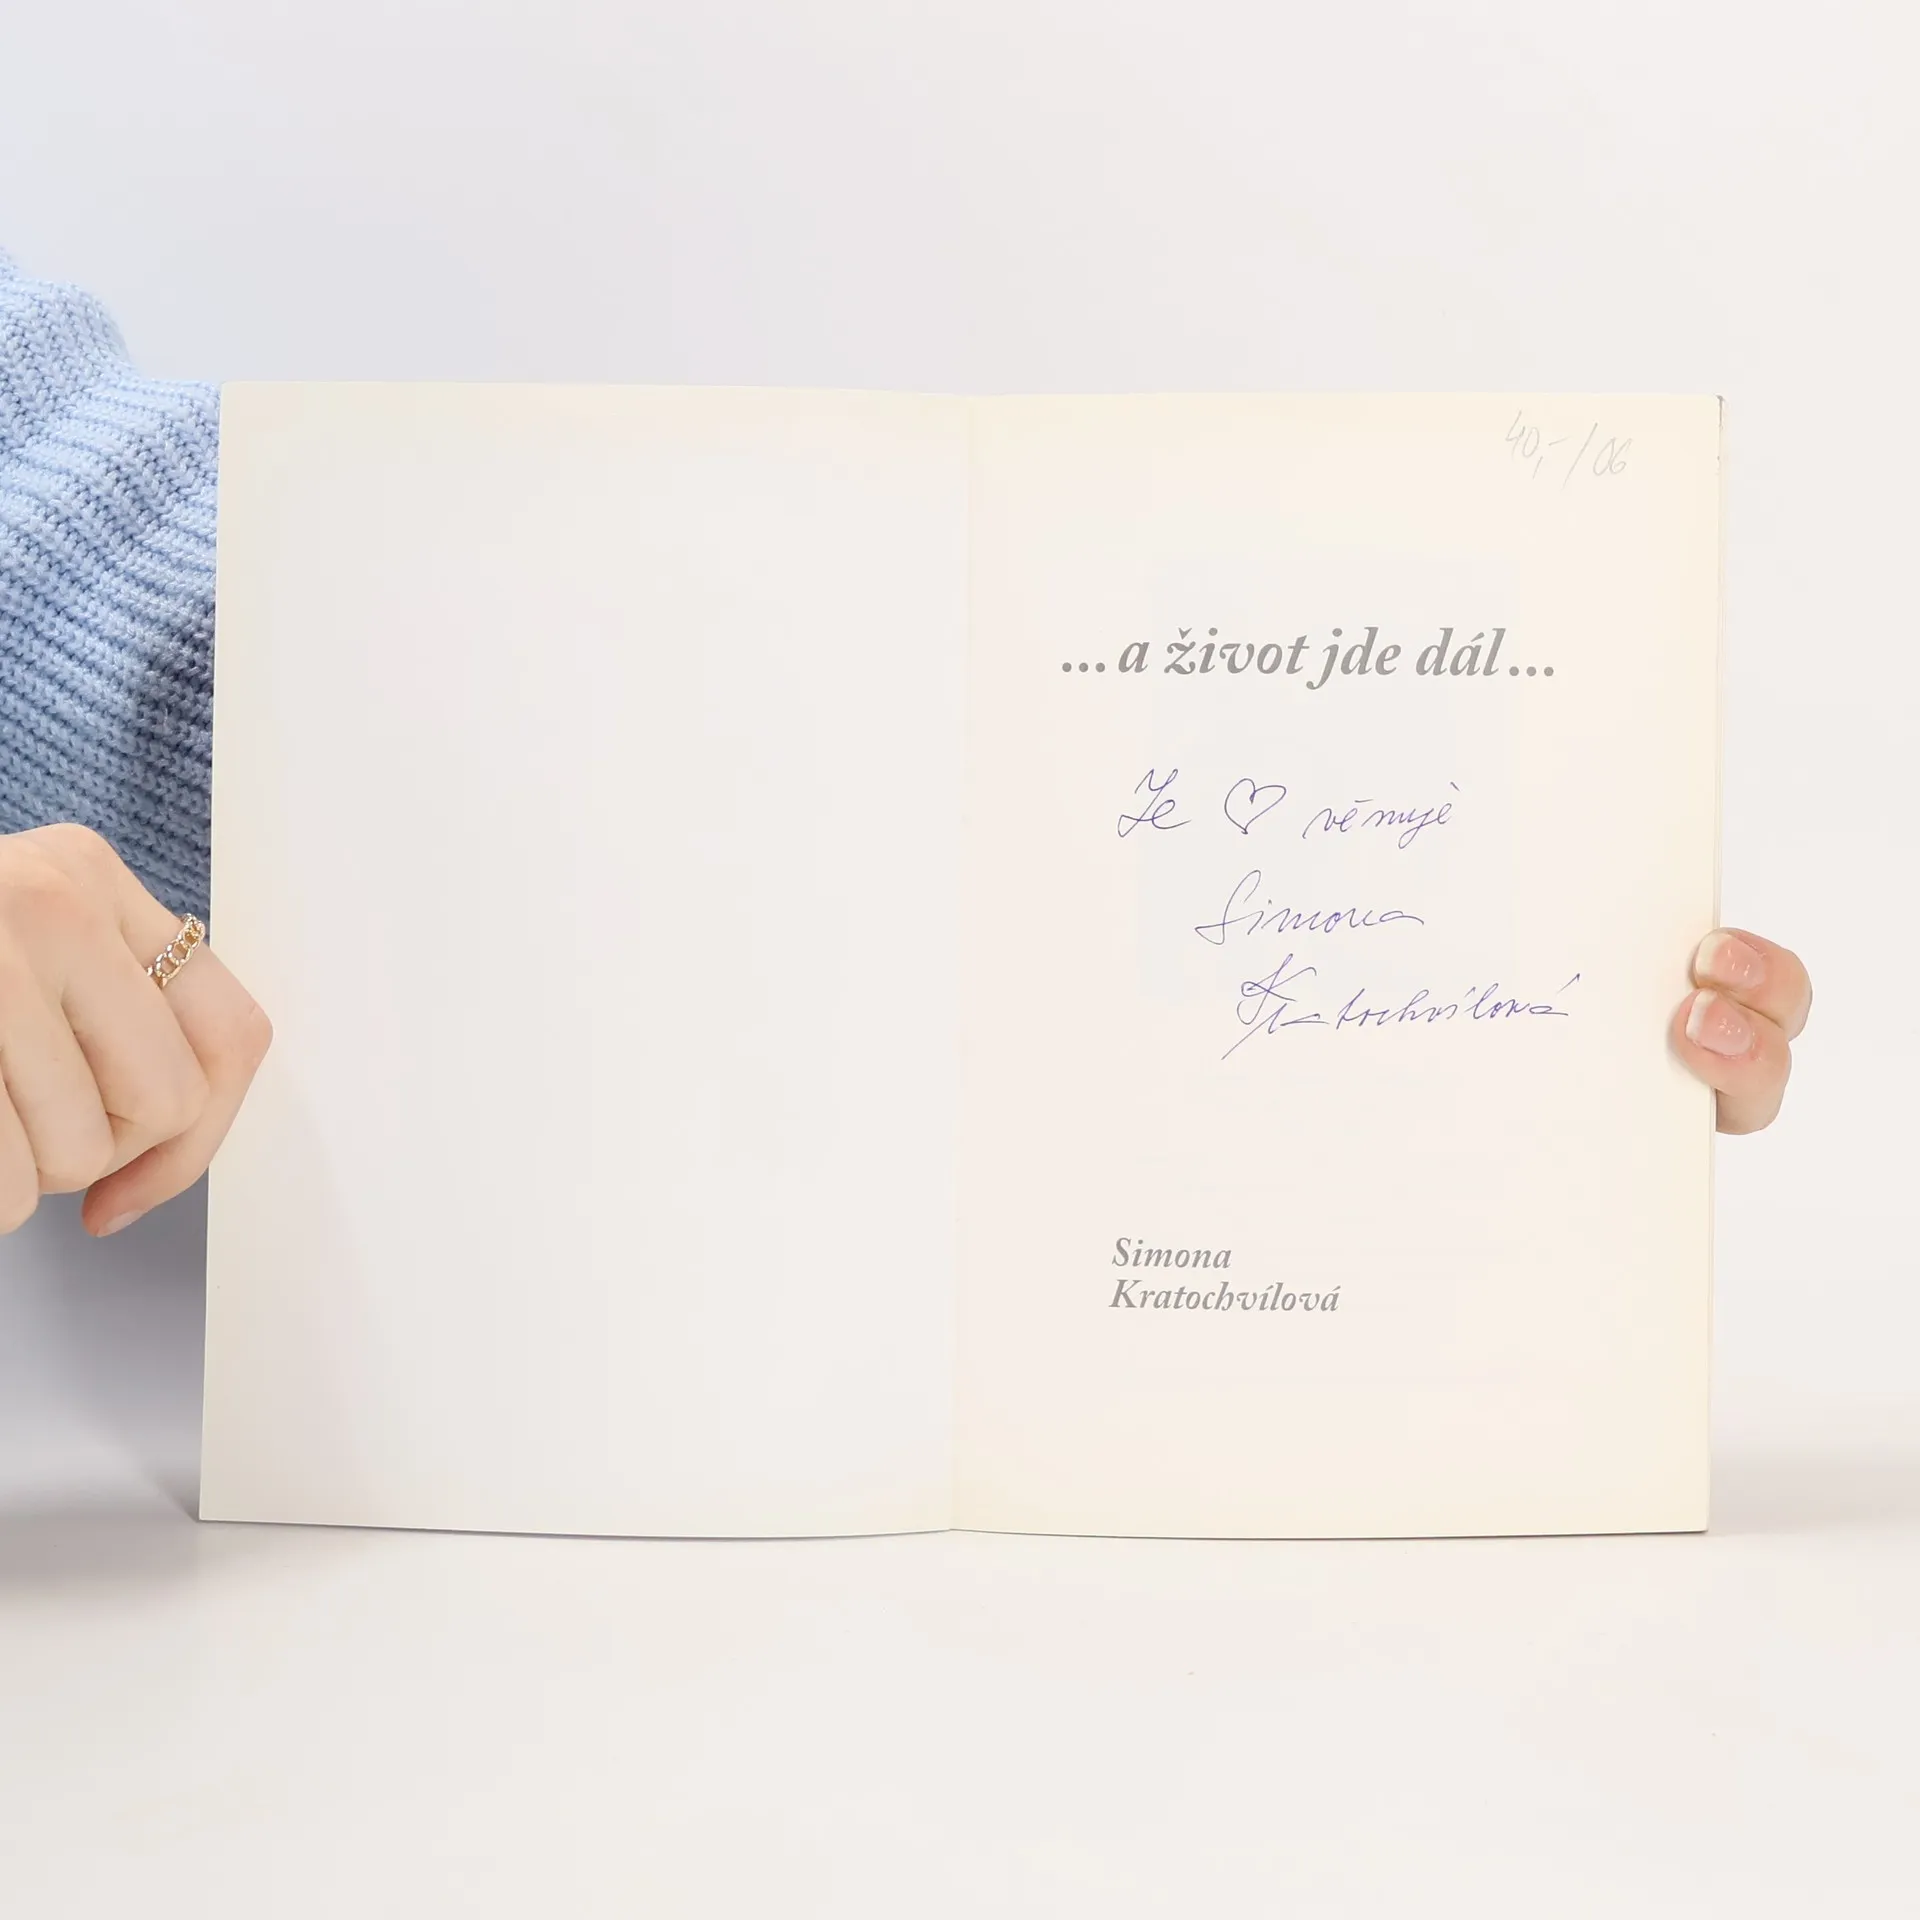 40,-/06
...a život jde dál...
Ze ♡ věnuje
Simona
Kratochvílová
Simona
Kratochvílová